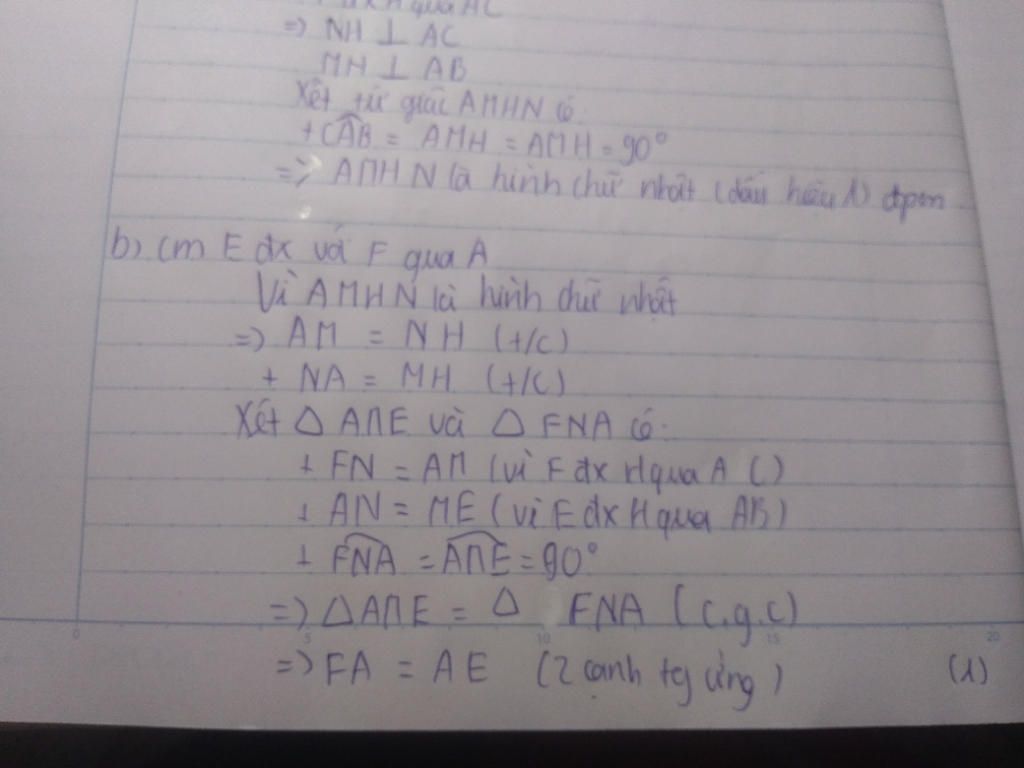 đx H qua AC
=> NH ⊥ AC
MH ⊥ AB
Xét tứ giác AMHN có:
+ CAB = AMH = AMH = 90°
=> AMHN là hình chữ nhật (dấu hiệu 1) đpcm
b) cm E đx với F qua A
Vì AMHN là hình chữ nhật
=> AM = NH (t/c)
+ NA = MH (t/c)
Xét △ AME và △ FNA có:
+ FN = AM (vì F đx H qua AC)
+ AN = ME (vì E đx H qua AB)
+ FNA = AME = 90°
=> △AME = △ FNA (c.g.c)
0 5 10 15 20
=> FA = AE (2 cạnh tg ứng) (1)